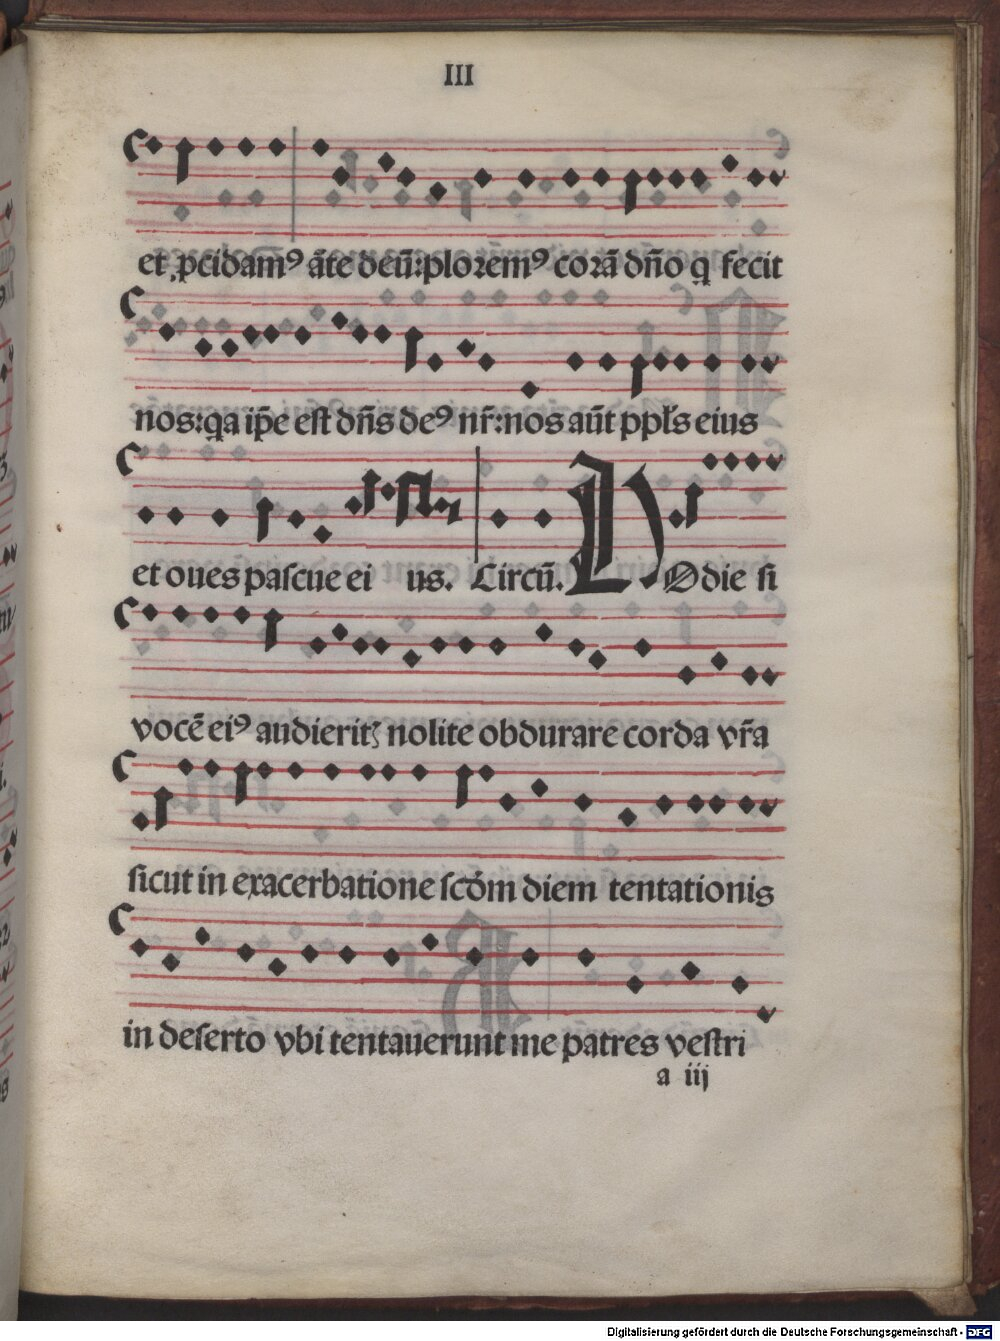 III
et ꝓcidamꝰ āte deū:ploremꝰ corā dño q fecit
nos:qa ip̄e est dn̄s deꝰ nr̄:nos aūt ppl̄s eius
et oues pascue ei us. Circū. HOdie si
vocē eiꝰ audieritꝫ nolite obdurare corda vr̄a
sicut in exacerbatione scd̄m diem tentationis
in deserto vbi tentauerunt me patres vestri
a iij
Digitalisierung gefördert durch die Deutsche Forschungsgemeinschaft - DFG